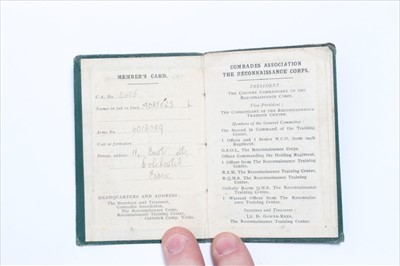 MEMBER'S CARD.
C.A. No.
Army No.
Unit or formation
Private address
Colchester
Essex
HEADQUARTERS AND ADDRESS:
The Secretary and Treasurer,
Comrades Association,
The Reconnaissance Corps,
Reconnaissance Training Centre,
Catterick Camp, Yorks.
COMRADES ASSOCIATION
THE RECONNAISSANCE CORPS.
PRESIDENT:
THE COLONEL COMMANDANT OF THE
RECONNAISSANCE CORPS.
Vice-President:
THE COMMANDANT OF THE RECONNAISSANCE
TRAINING CENTRE.
Members of the General Committee:
The Second in Command of the Training
Centre.
1 Officer and 1 Senior N.C.O. from each
Regiment.
Officer Commanding the Holding Regiment.
1 Officer from The Reconnaissance Training
Centre.
R.S.M. The Reconnaissance Training Centre.
R.Q.M.S. The Reconnaissance Training
Centre.
Orderly Room Q.M.S. The Reconnaissance
Training Centre.
1 Warrant Officer from The Reconnaissance
Training Centre.
Secretary and Treasurer:
The Reconnaissance Training Centre.